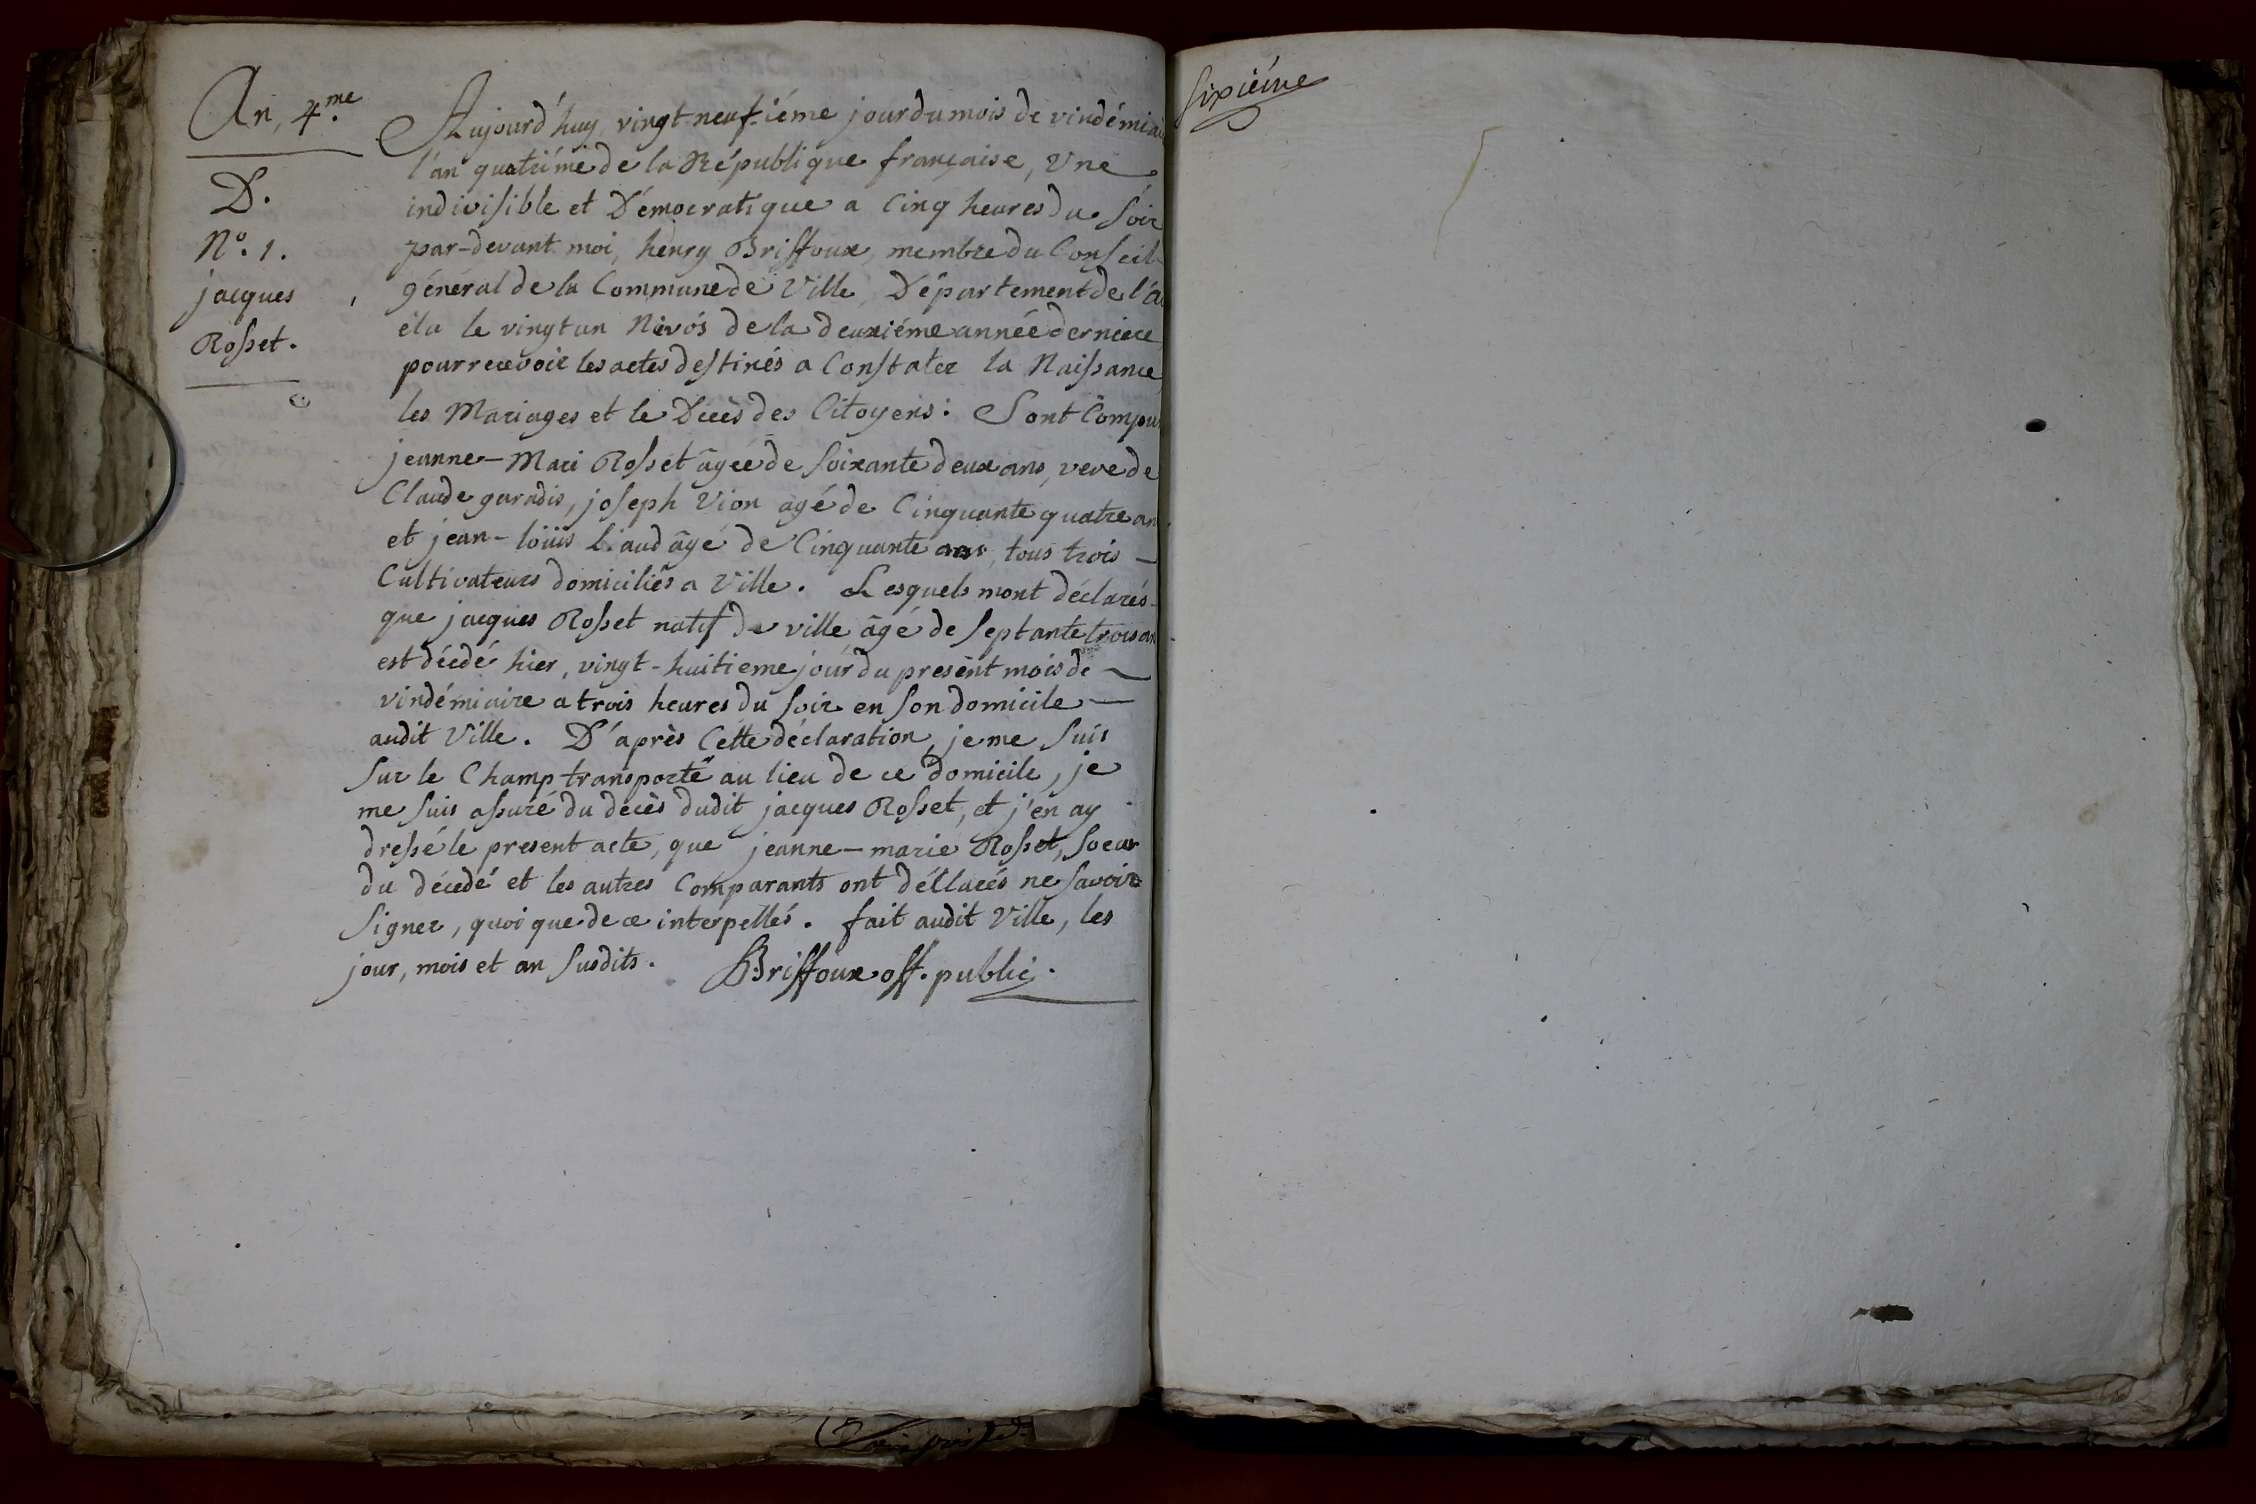 An, 4.me
D.
N.o 1.
jacques
Rosset.
Aujourd'huy, vingt-neufiéme jour du mois de vindémiai
l'an quatriéme de la République française, Une
indivisible et Démocratique a Cinq heures du Soir
par-devant moi, henry Briffoux, membre du Conseil
général de la Commune de Ville, Département de l'a
élu le vingt un Nivôs de la deuxiéme année derniere
pour recevoir les actes destinés a Constater la Naissance
les Mariages et le Décès des Citoyens: Sont Compa
jeanne-Mari Rosset âgée de Soixante deux ans, veve de
Claude garadis, joseph Vion âgé de Cinquante quatre an
et jean-loüis Liaud âgé de Cinquante ans, tous trois
Cultivateurs domiciliés a Ville. Lesquels mont déclarés
que jacques Rosset natif de ville âgé de septante trois an
est décédé hier, vingt-huitieme jour du present mois de
vindémiaire a trois heures du soir en son domicile
audit Ville. D'après Cette déclaration, je me Suis
Sur le Champ transporté au lieu de ce domicile, je
me suis assuré du décès dudit jacques Rosset, et j'en ay
dressé le present acte, que jeanne-marie Rosset, Soeur
du décedé et les autres Comparants ont déclarés ne savoir
Signer, quoi que de ce interpellés. fait audit Ville, les
jour, mois et an susdits. Briffoux off. public.
Sixiéme